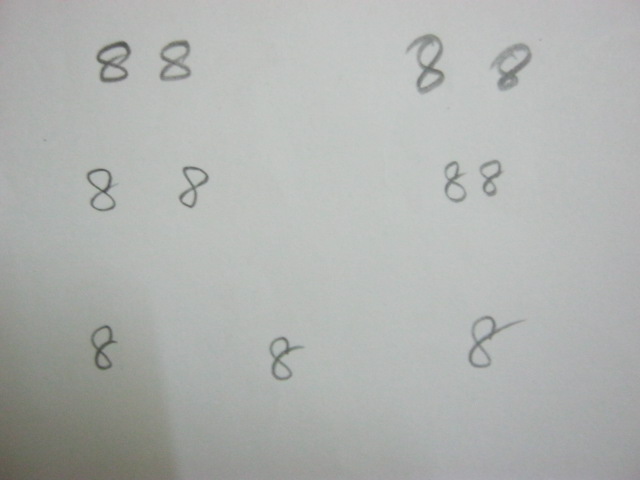 8 8 8 8
8 8 8 8
8 8 8